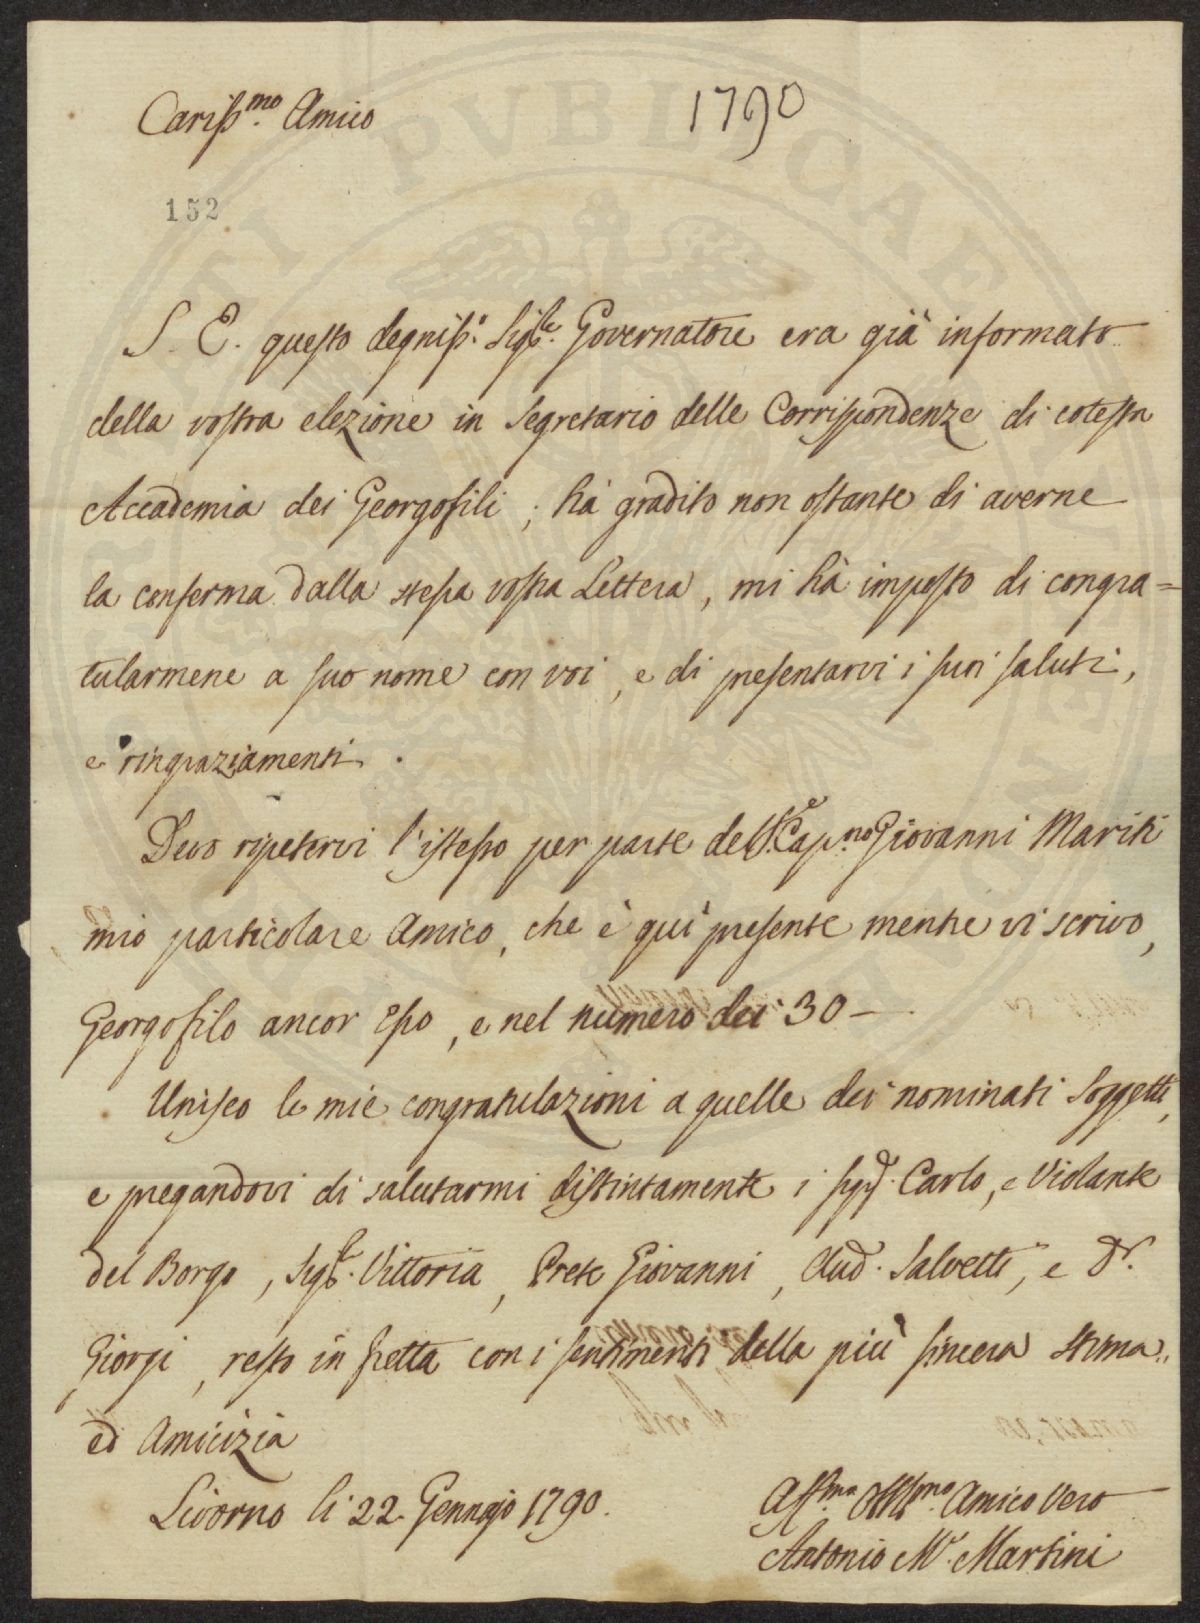 Cariss.mo Amico
1790
152
S. E. questo degniss.o Sig.re Governatore era già informato
della vostra elezione in Segretario delle Corrispondenze di cotesta
Accademia dei Georgofili; hà gradito non ostante di averne
la conferma dalla stessa vostra Lettera, mi hà imposto di congra=
tularmene a suo nome con voi, e di presentarvi i suoi saluti,
e ringraziamenti.
Devo ripetervi l'istesso per parte del S.e Cap.no Giovanni Mariti
mio particolare Amico, che è quì presente mentre vi scrivo,
Georgofilo ancor Esso, e nel numero dei 30 —
Unisco le mie congratulazioni a quelle dei nominati Soggetti,
e pregandovi di salutarmi distintamente i Sigg.ri Carlo, e Violante
del Borgo, Sig.ra Vittoria, Prete Giovanni, Aud. Salvetti, e D.r
Giorgi, resto in fretta con i sentimenti della più sincera stima
ed Amicizia
Livorno li 22. Gennajo 1790.
Aff.mo Obbl.mo Amico Vero
Antonio M.a Martini